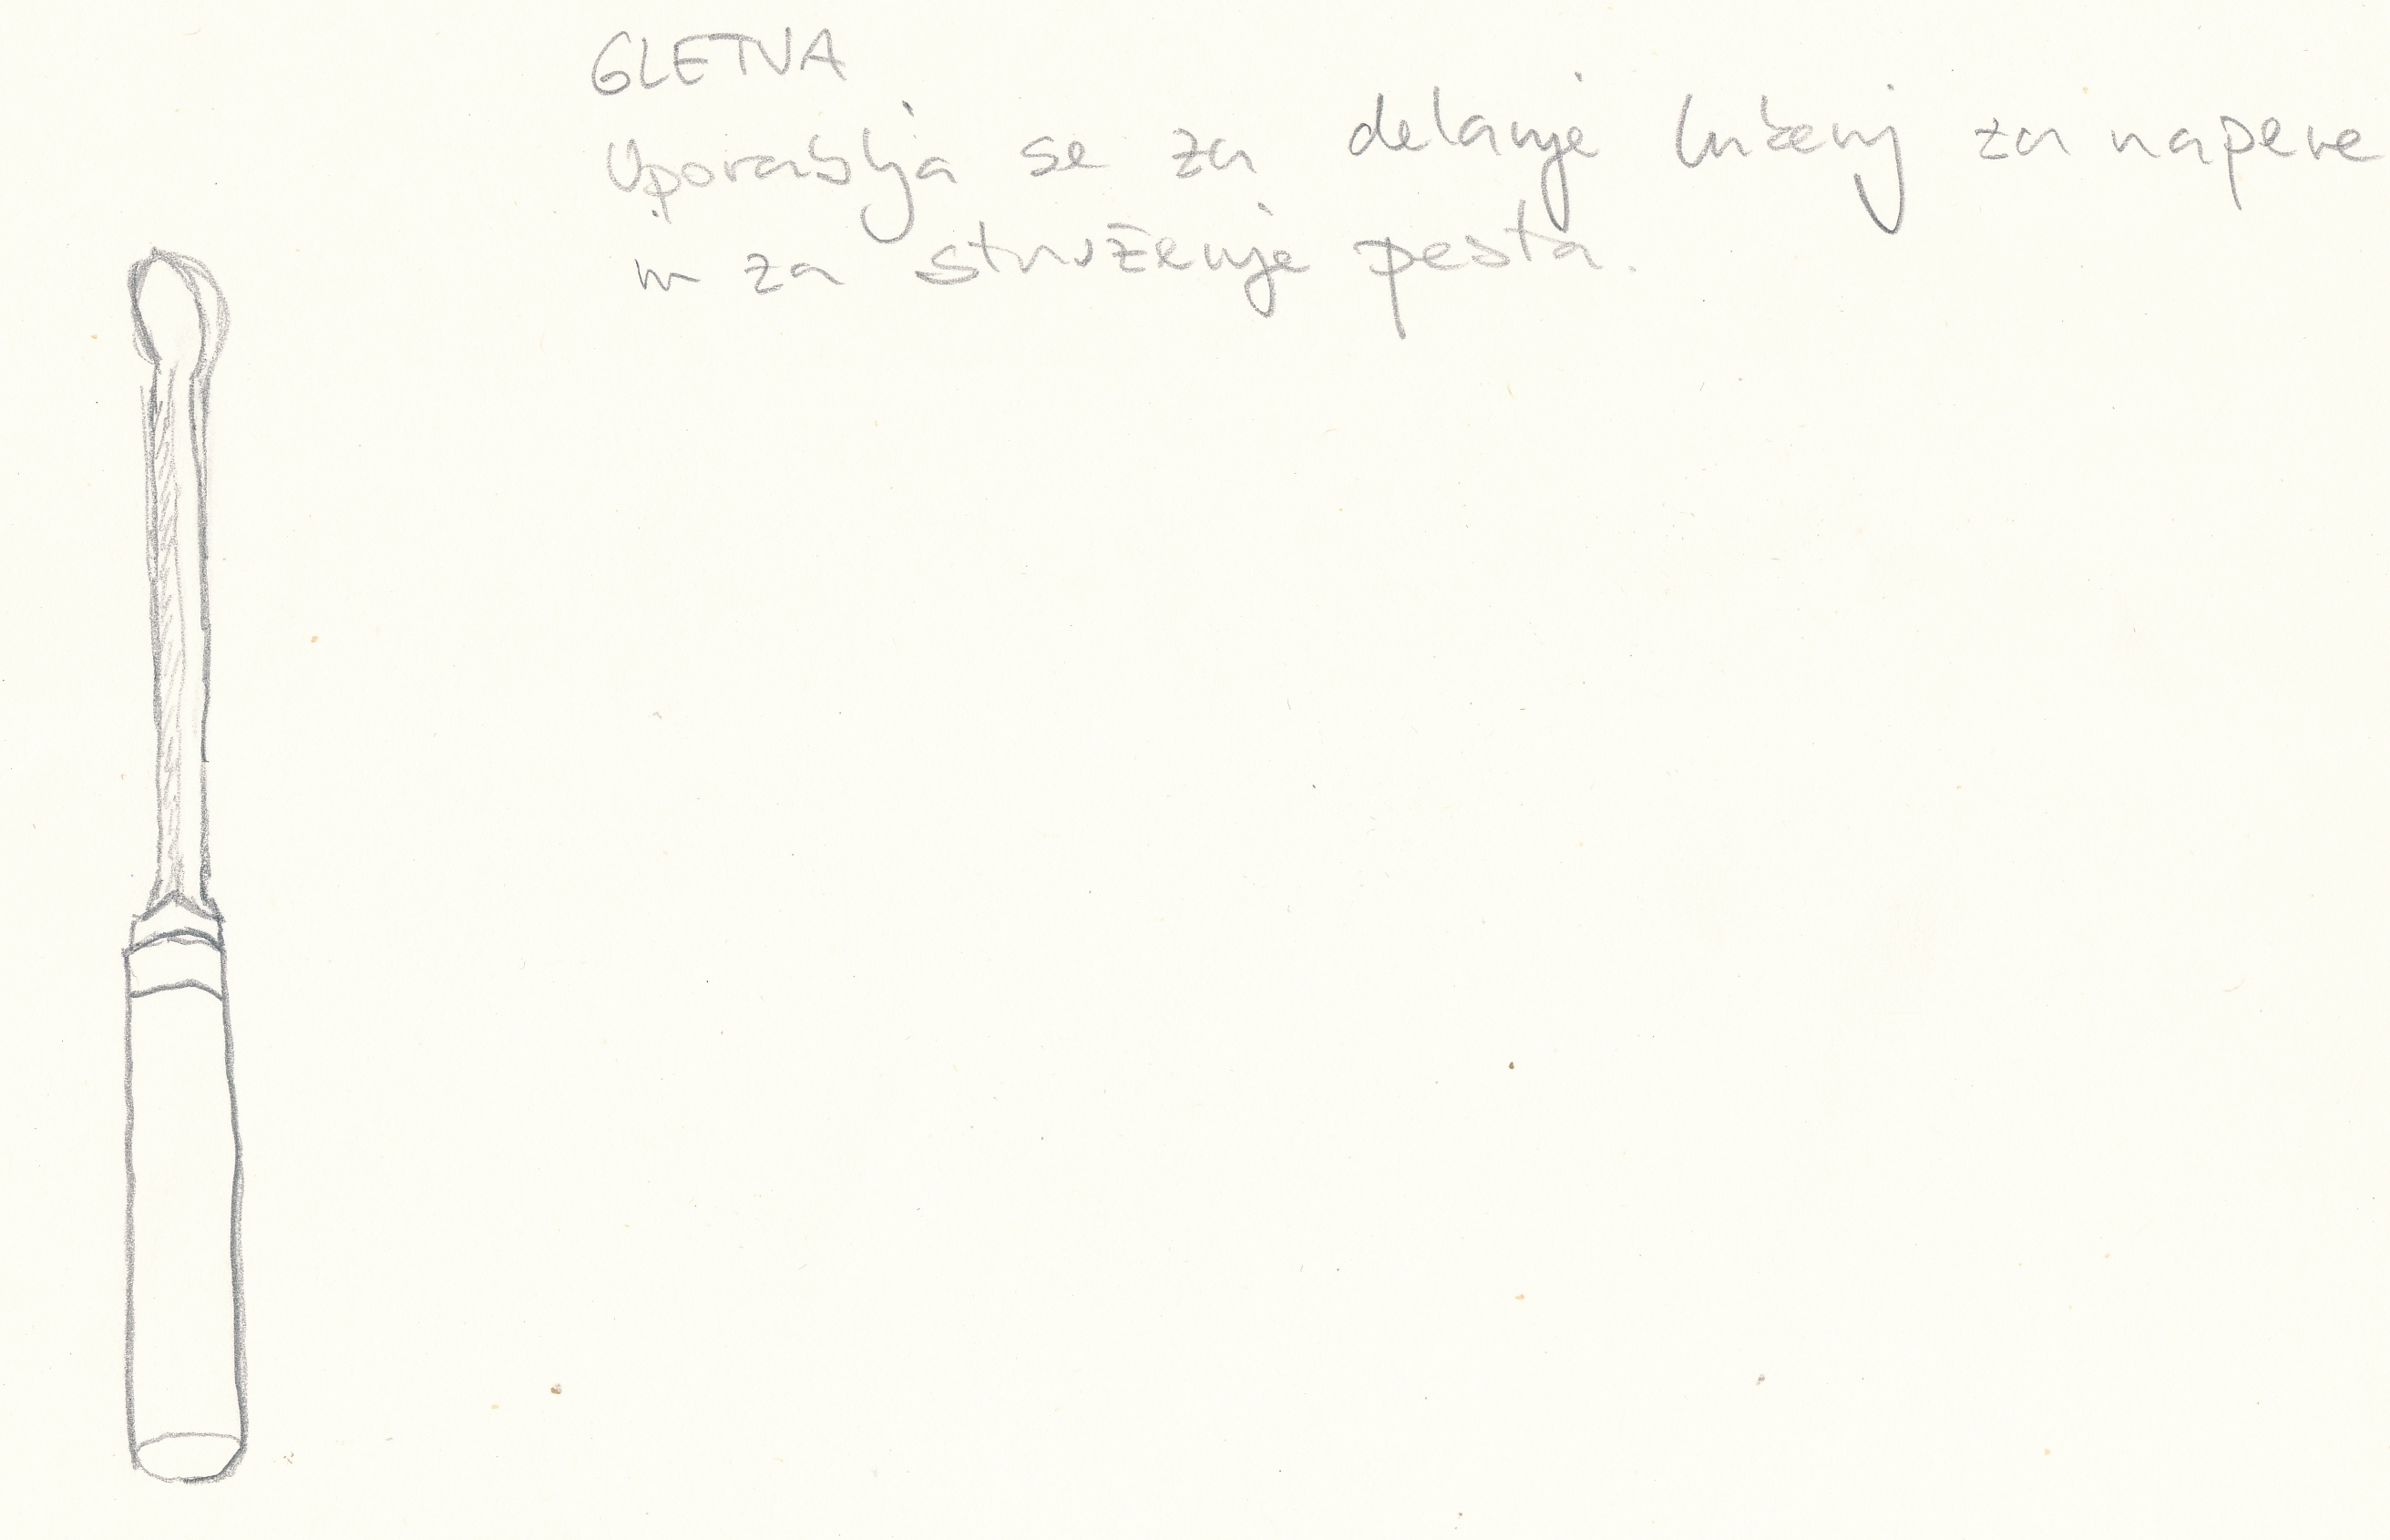 GLETVA
Uporablja se za delanje lukenj za napere
in za struženje pesta.